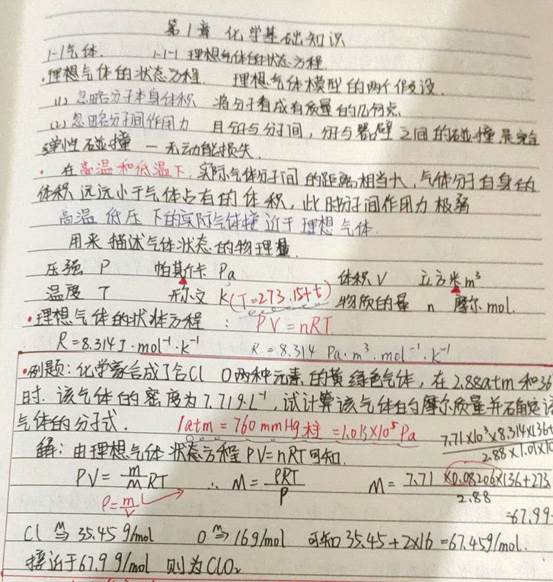 第1章 化学基础知识
1-1气体. 1-1-1 理想气体的状态方程.
·理想气体的状态方程. 理想气体模型的两个假设.
(1) 忽略分子本身体积 将分子看成有质量的几何点.
(2) 忽略分子间作用力 且分子与分子间,分子与器壁之间的碰撞是完全
弹性碰撞 — 无动能损失.
·在高温和低温下,实际气体分子间的距离相当大,气体分子自身的
体积远远小于气体占有的体积,此时分子间作用力极弱
高温 低压 下的实际气体接近于理想气体.
用来描述气体状态的物理量.
压强 P 帕斯卡 Pa 体积 V 立方米 m³
温度 T 开尔文 K(T=273.15+t) 物质的量 n 摩尔 mol.
·理想气体的状态方程: PV=nRT
R=8.314 J·mol⁻¹·K⁻¹ R=8.314 Pa·m³·mol⁻¹·K⁻¹
·例题:化学家合成了含Cl O两种元素的黄绿色气体,在2.88atm和36
时.该气体的密度为7.71g·L⁻¹,试计算该气体的摩尔质量并确定该
气体的分子式. 1atm=760mmHg柱=1.013×10⁵Pa 7.71×10³×8.314×(36+
2.88×1.01×10
解:由理想气体状态方程PV=nRT可知.
PV=m/M RT ∴ M=ρRT/P M=7.71×0.08206×(36+273
2.88
ρ=m/V =67.99
Cl 35.45g/mol O 16g/mol 可知35.45+2×16=67.45g/mol.
接近于67.9g/mol 则为ClO₂